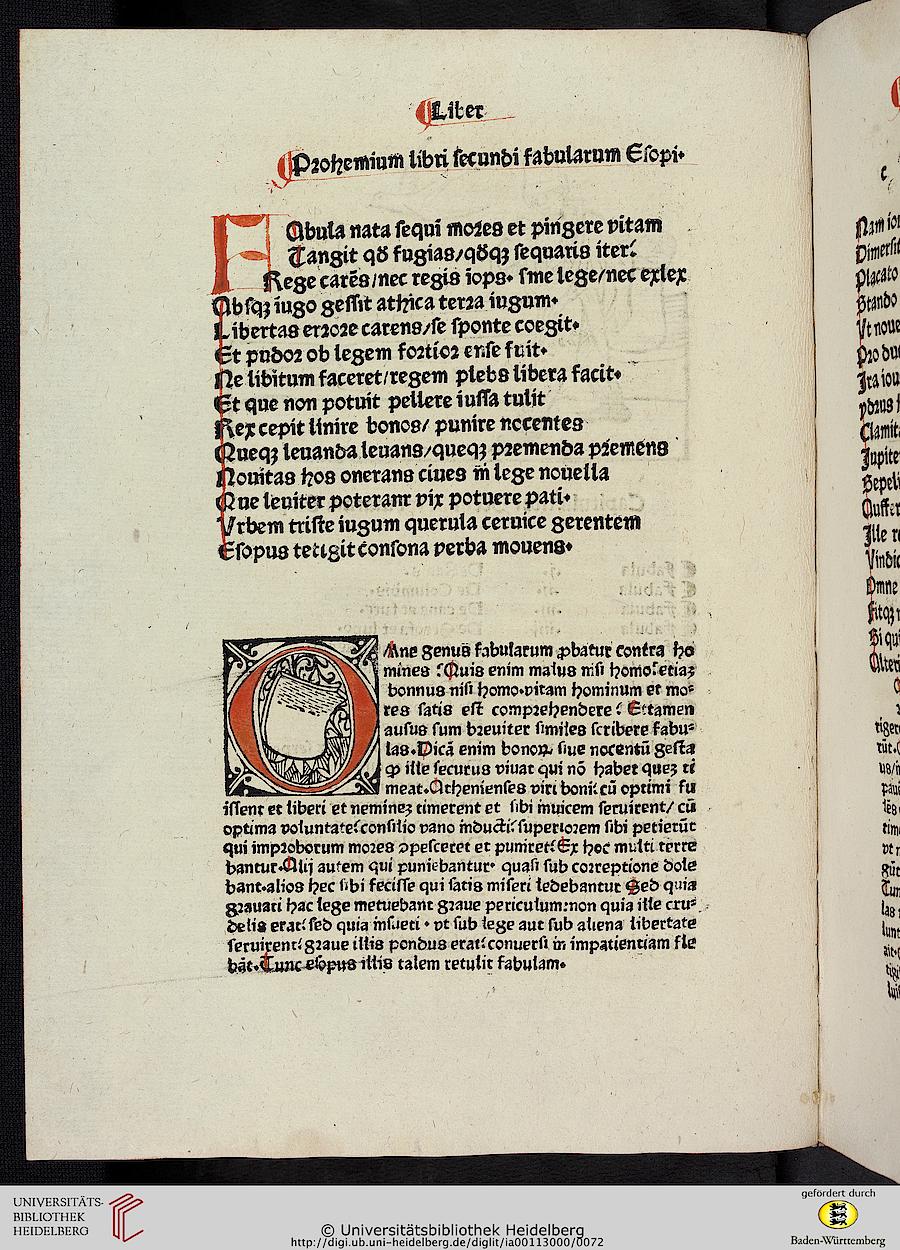 Liber
Prohemium libri secundi fabularum Esopi.
FAbula nata sequi mores et pingere vitam
Tangit qđ fugias/qđqꝫ sequaris iter:
Rege carēs/nec regis iops. sine lege/nec exlex
Absqꝫ iugo gessit athica terra iugum.
Libertas errore carens/se sponte coegit.
Et pudor ob legem fortior ense fuit.
Ne libitum faceret/regem plebs libera facit.
Et que non potuit pellere iussa tulit
Rex cepit linire bonos/ punire nocentes
Queqꝫ leuanda leuans/queqꝫ premenda premens
Nouitas hos onerans ciues in lege nouella
Que leuiter poterant vix potuere pati.
Vrbem triste iugum querula ceruice gerentem
Esopus tetigit consona verba mouens.
OMne genus fabularum ꝓbatur contra ho
mines : Quis enim malus nisi homo: etiaꝫ
bonnus nisi homo. vitam hominum et mo⸗
res satis est comprehendere : Ettamen
ausus sum breuiter similes scribere fabu⸗
las. Dicā enim bonoꝝ siue nocentū gesta
ꝙ ille securus viuat qui nō habet queꝫ ti
meat. Athenienses viri boni: cū optimi fu
issent et liberi et nemineꝫ timerent et sibi inuicem seruirent/ cū
optima voluntate: consilio vano inducti: superiorem sibi petierūt
qui improborum mores ↄpesceret et puniret: Ex hoc multi terre
bantur. Alij autem qui puniebantur. quasi sub correptione dole
bant. alios hec sibi fecisse qui satis miseri ledebantur Sed quia
grauati hac lege metuebant graue periculum: non quia ille cru⸗
delis erat: sed quia insueti . vt sub lege aut sub aliena libertate
seruirent: graue illis pondus erat: conuersi in impatientiam fle
bāt. Tunc esopus illis talem retulit fabulam.
UNIVERSITÄTS-
BIBLIOTHEK
HEIDELBERG
© Universitätsbibliothek Heidelberg
http://digi.ub.uni-heidelberg.de/diglit/ia00113000/0072
gefördert durch
Baden-Württemberg